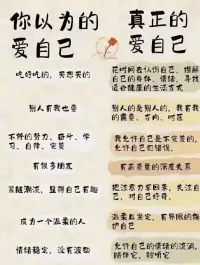 你以为的
爱自己
真正的
爱自己
吃好吃的，买想买的
花时间去认识自己、理解
自己的身体、情绪，寻找
适合健康的生活方式
别人有我也要
别人的是别人的，我有我
的需要、方向、时区
不停的努力、奋斗、学
习、自律、完美
我允许自己是不完美的，
也允许自己犯错误。
有很多朋友
有高质量的深度关系
紧随潮流，显得自己有趣
把注意力拿回来，关注自
己，对自己好奇。
成为一个温柔的人
温柔且坚定，有界限的维
护自己
情绪稳定，没有波动
允许自己的情绪的流淌，
陪伴它，聆听它